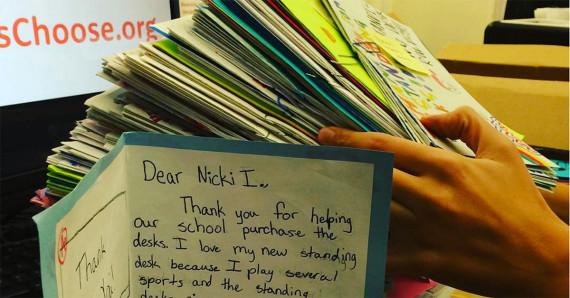 sChoose.org
Dear Nicki I..
Thank you for helping
our school purchase the
desks. I love my new standing
desk because I play several
sports and the standing
Thank